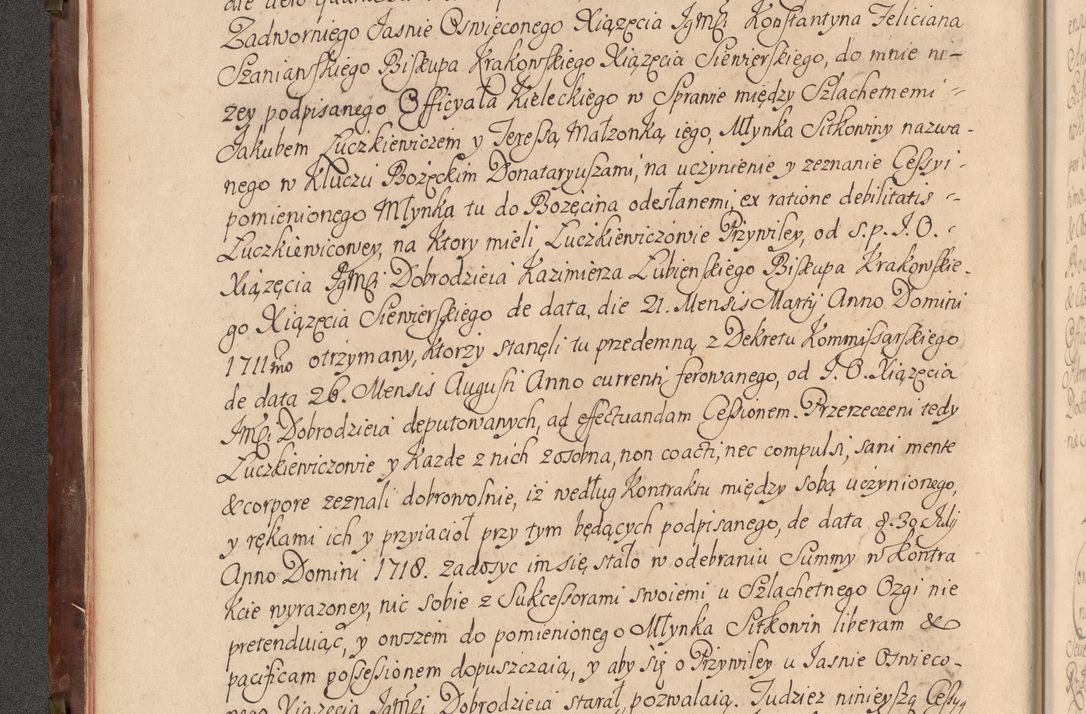 Zadworniego Jasnie Oswieconego Xiązęcia JgMći Konstantyna Feliciana
Szaniawskiego Biskupa Krakowskiego Xiązęcia Siewierskiego, do mnie ni-
zey podpisanego Officyała Kieleckiego w Sprawie między Szlachetnemi
Jakubem Łuczkiewiczem y Teressą Małzonką iego, Młynka Sitkowiny nazwa-
nego w Kluczu Bozęckim Donataryuszami, na uczynienie y zeznanie Cessyi
pomienionego Młynka tu do Bozęcina odesłanemi, ex ratione debilitatis
Łuczkiewicowey, na Ktory mieli Łuczkiewiczowie Przywiley, od s.p. J.O.
Xiązęcia JgMći Dobrodzieia Kazimierza Łubienskiego Biskupa Krakowskie-
go Xiązęcia Siewierskiego de data, die 21. Mensis Martij Anno Domini
1711mo otrzymany, Ktorzy stanęli tu przedemną z Dekretu Kommissarskiego
de data 26. Mensis Augusti Anno currenti ferowanego, od J.O. Xiązęcia
JMći Dobrodzieia deputowanych, ad effectuandam Cessionem. Przerzeczeni tedy
Łuczkiewiczowie y Kazde z nich zosobna, non coacti, nec compulsi, sani mente
& corpore zeznali dobrowolnie, iz według Kontraktu między sobą uczynionego,
y rękami ich y przyiacioł przy tym będących podpisanego, de data d. 30 Julij
Anno Domini 1718. zadosyc im się stało w odebraniu Summy w Kontra
Kcie wyrazoney, nic sobie z Sukcessorami swoiemi u Szlachetnego Ozgi nie
pretenduiąc, y owszem do pomienionego Młynka Sitkowin liberam &
pacificam possessionem dopuszczaią, y aby się o Przywiley u Jasnie Oswieco-
nego Xiązęcia JgMći Dobrodzieia starał, pozwalaią. Tudziez ninieyszą Cessyą